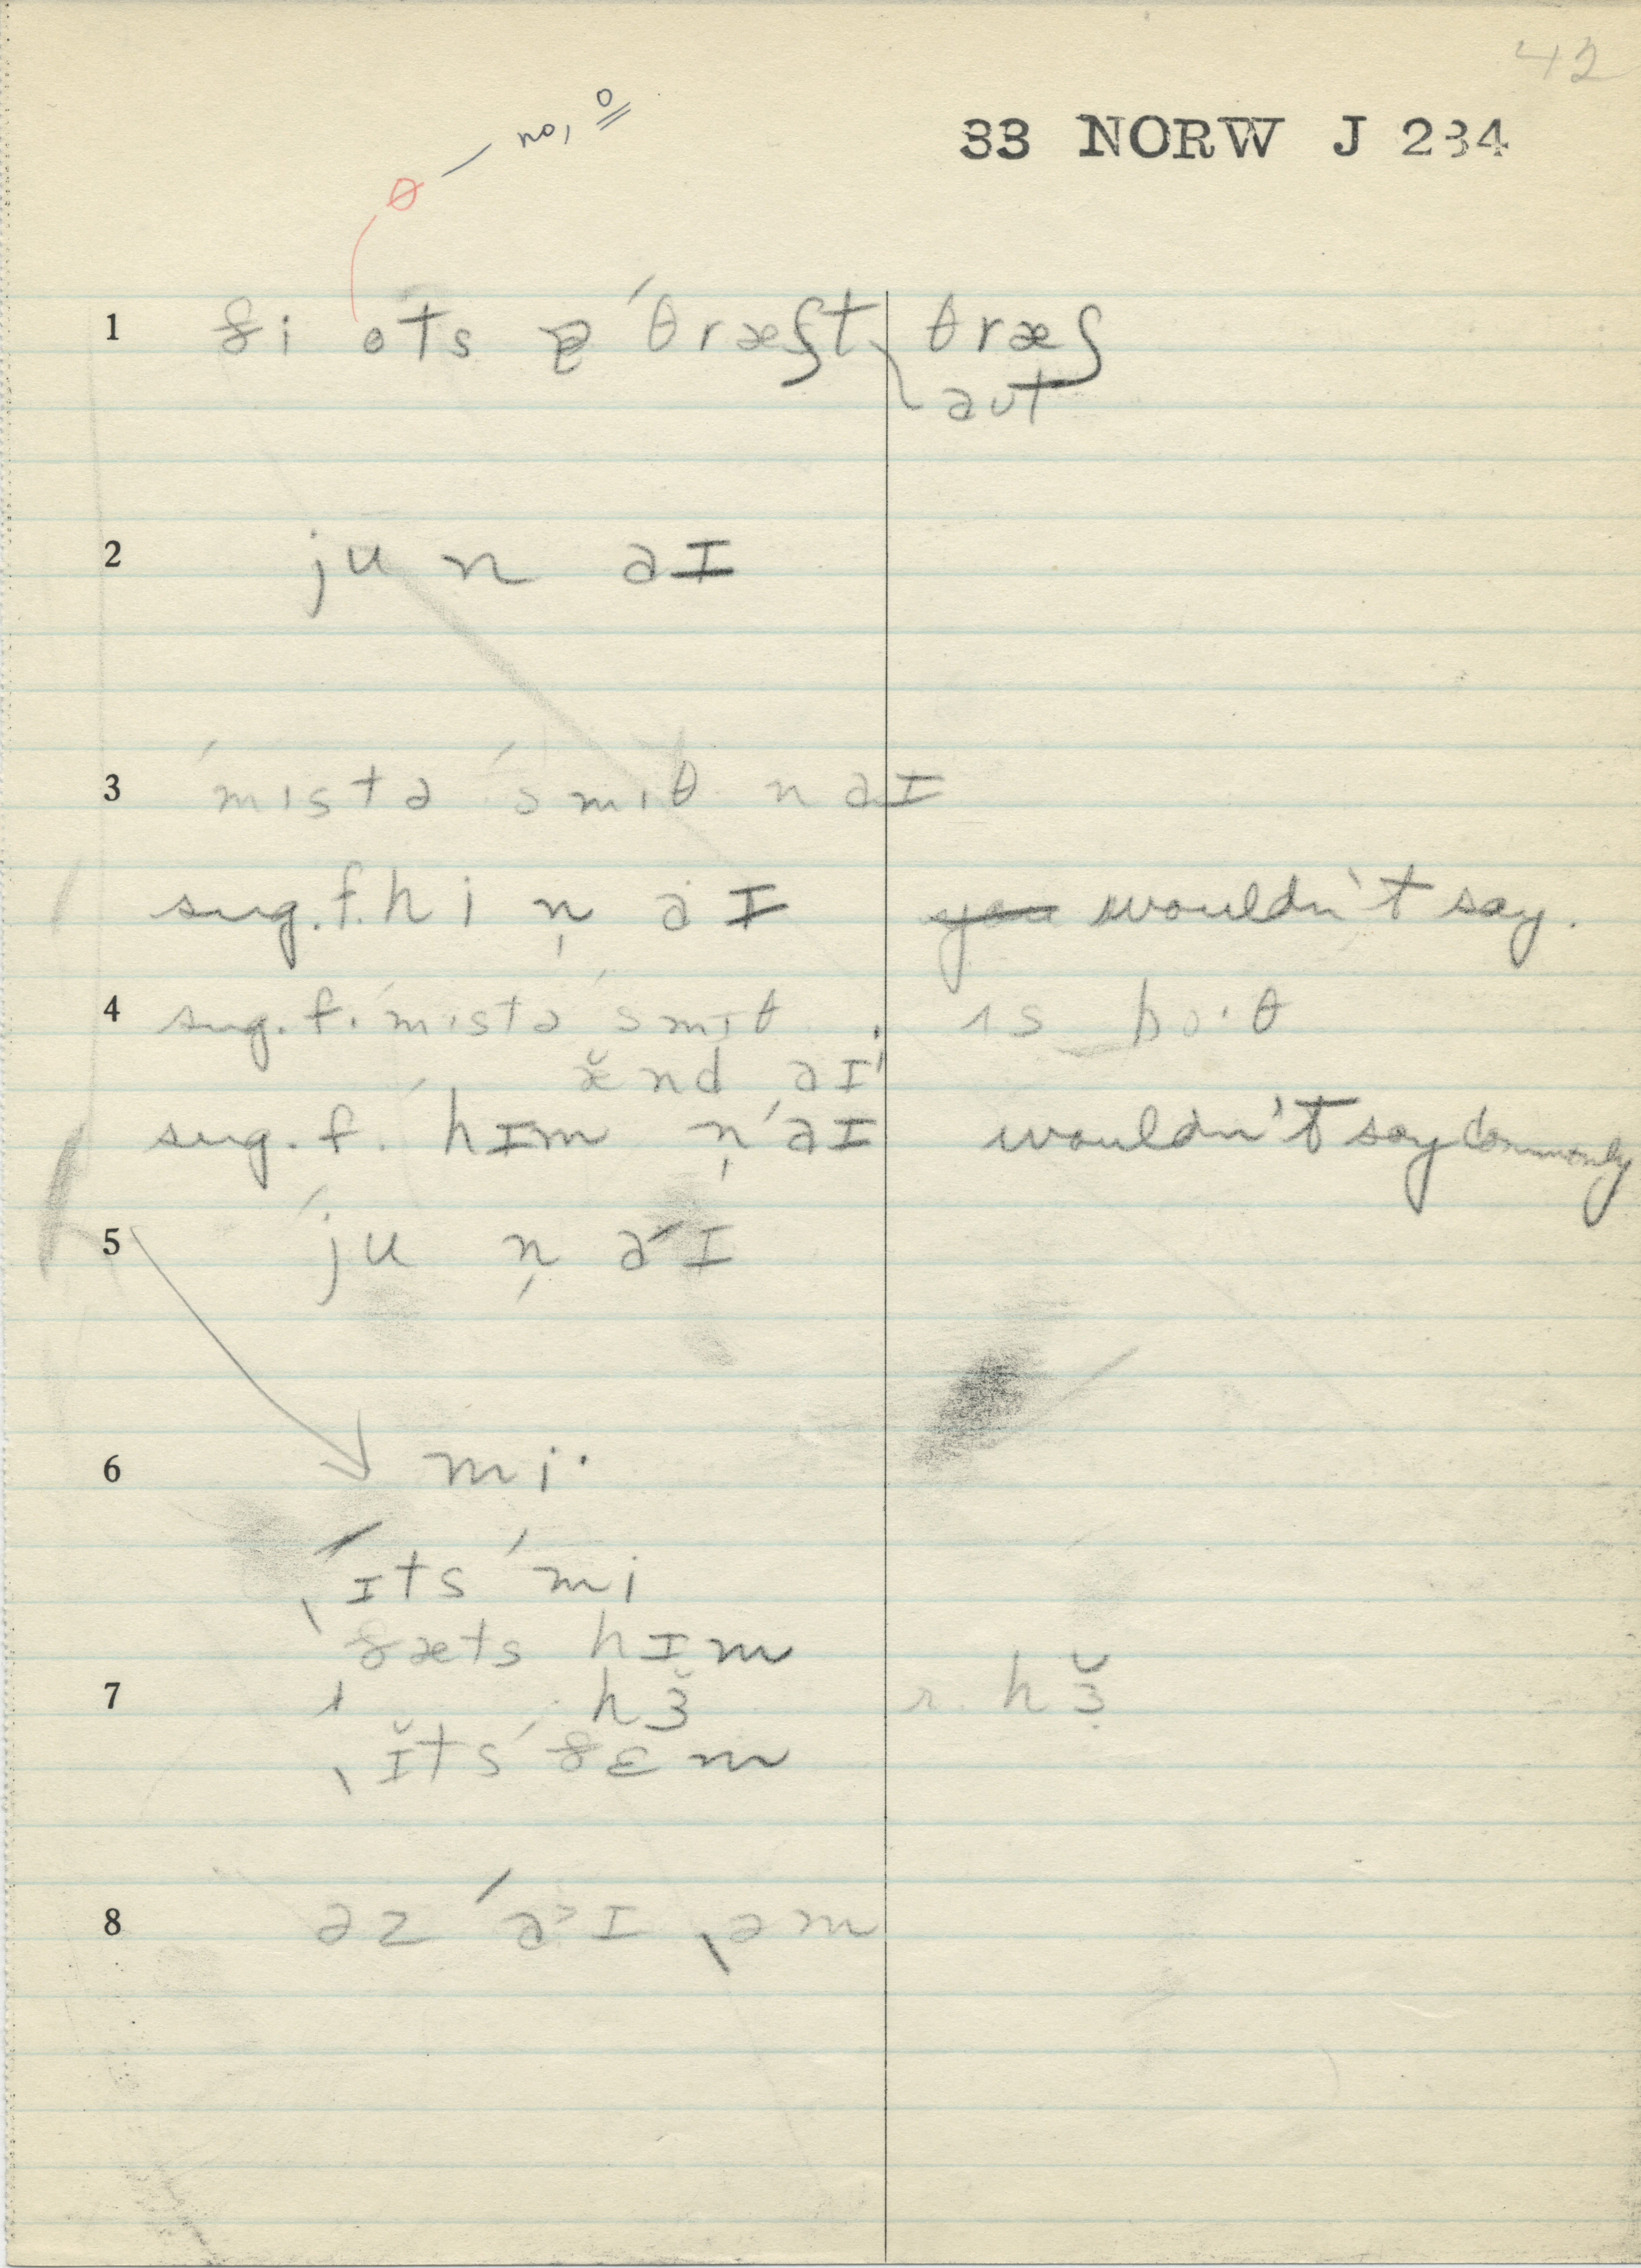 42
33 NORW J 234
ɵ — no, o
1 ði ots ə ˈθræʃt θræʃ
aut
2 ju n aɪ
3 ˈmɪstə ˈsmɪθ n aɪ
sug. f. hi n̩ aɪ you wouldn't say.
4 sug. f. ˈmɪstə ˈsmɪθ ɪs boˑθ
æ̆nd aɪ
sug. f. ˈhɪm n̩ ˈaɪ wouldn't say commonly
5 ˈju n̩ aɪ
6 miˑ
ɪts ˈmi
ðæts hɪm
7 hɜ̆ r. hɜ̆
ɪ̆ts ˈðɛm
8 əz ˈa˃ɪ ˌəm